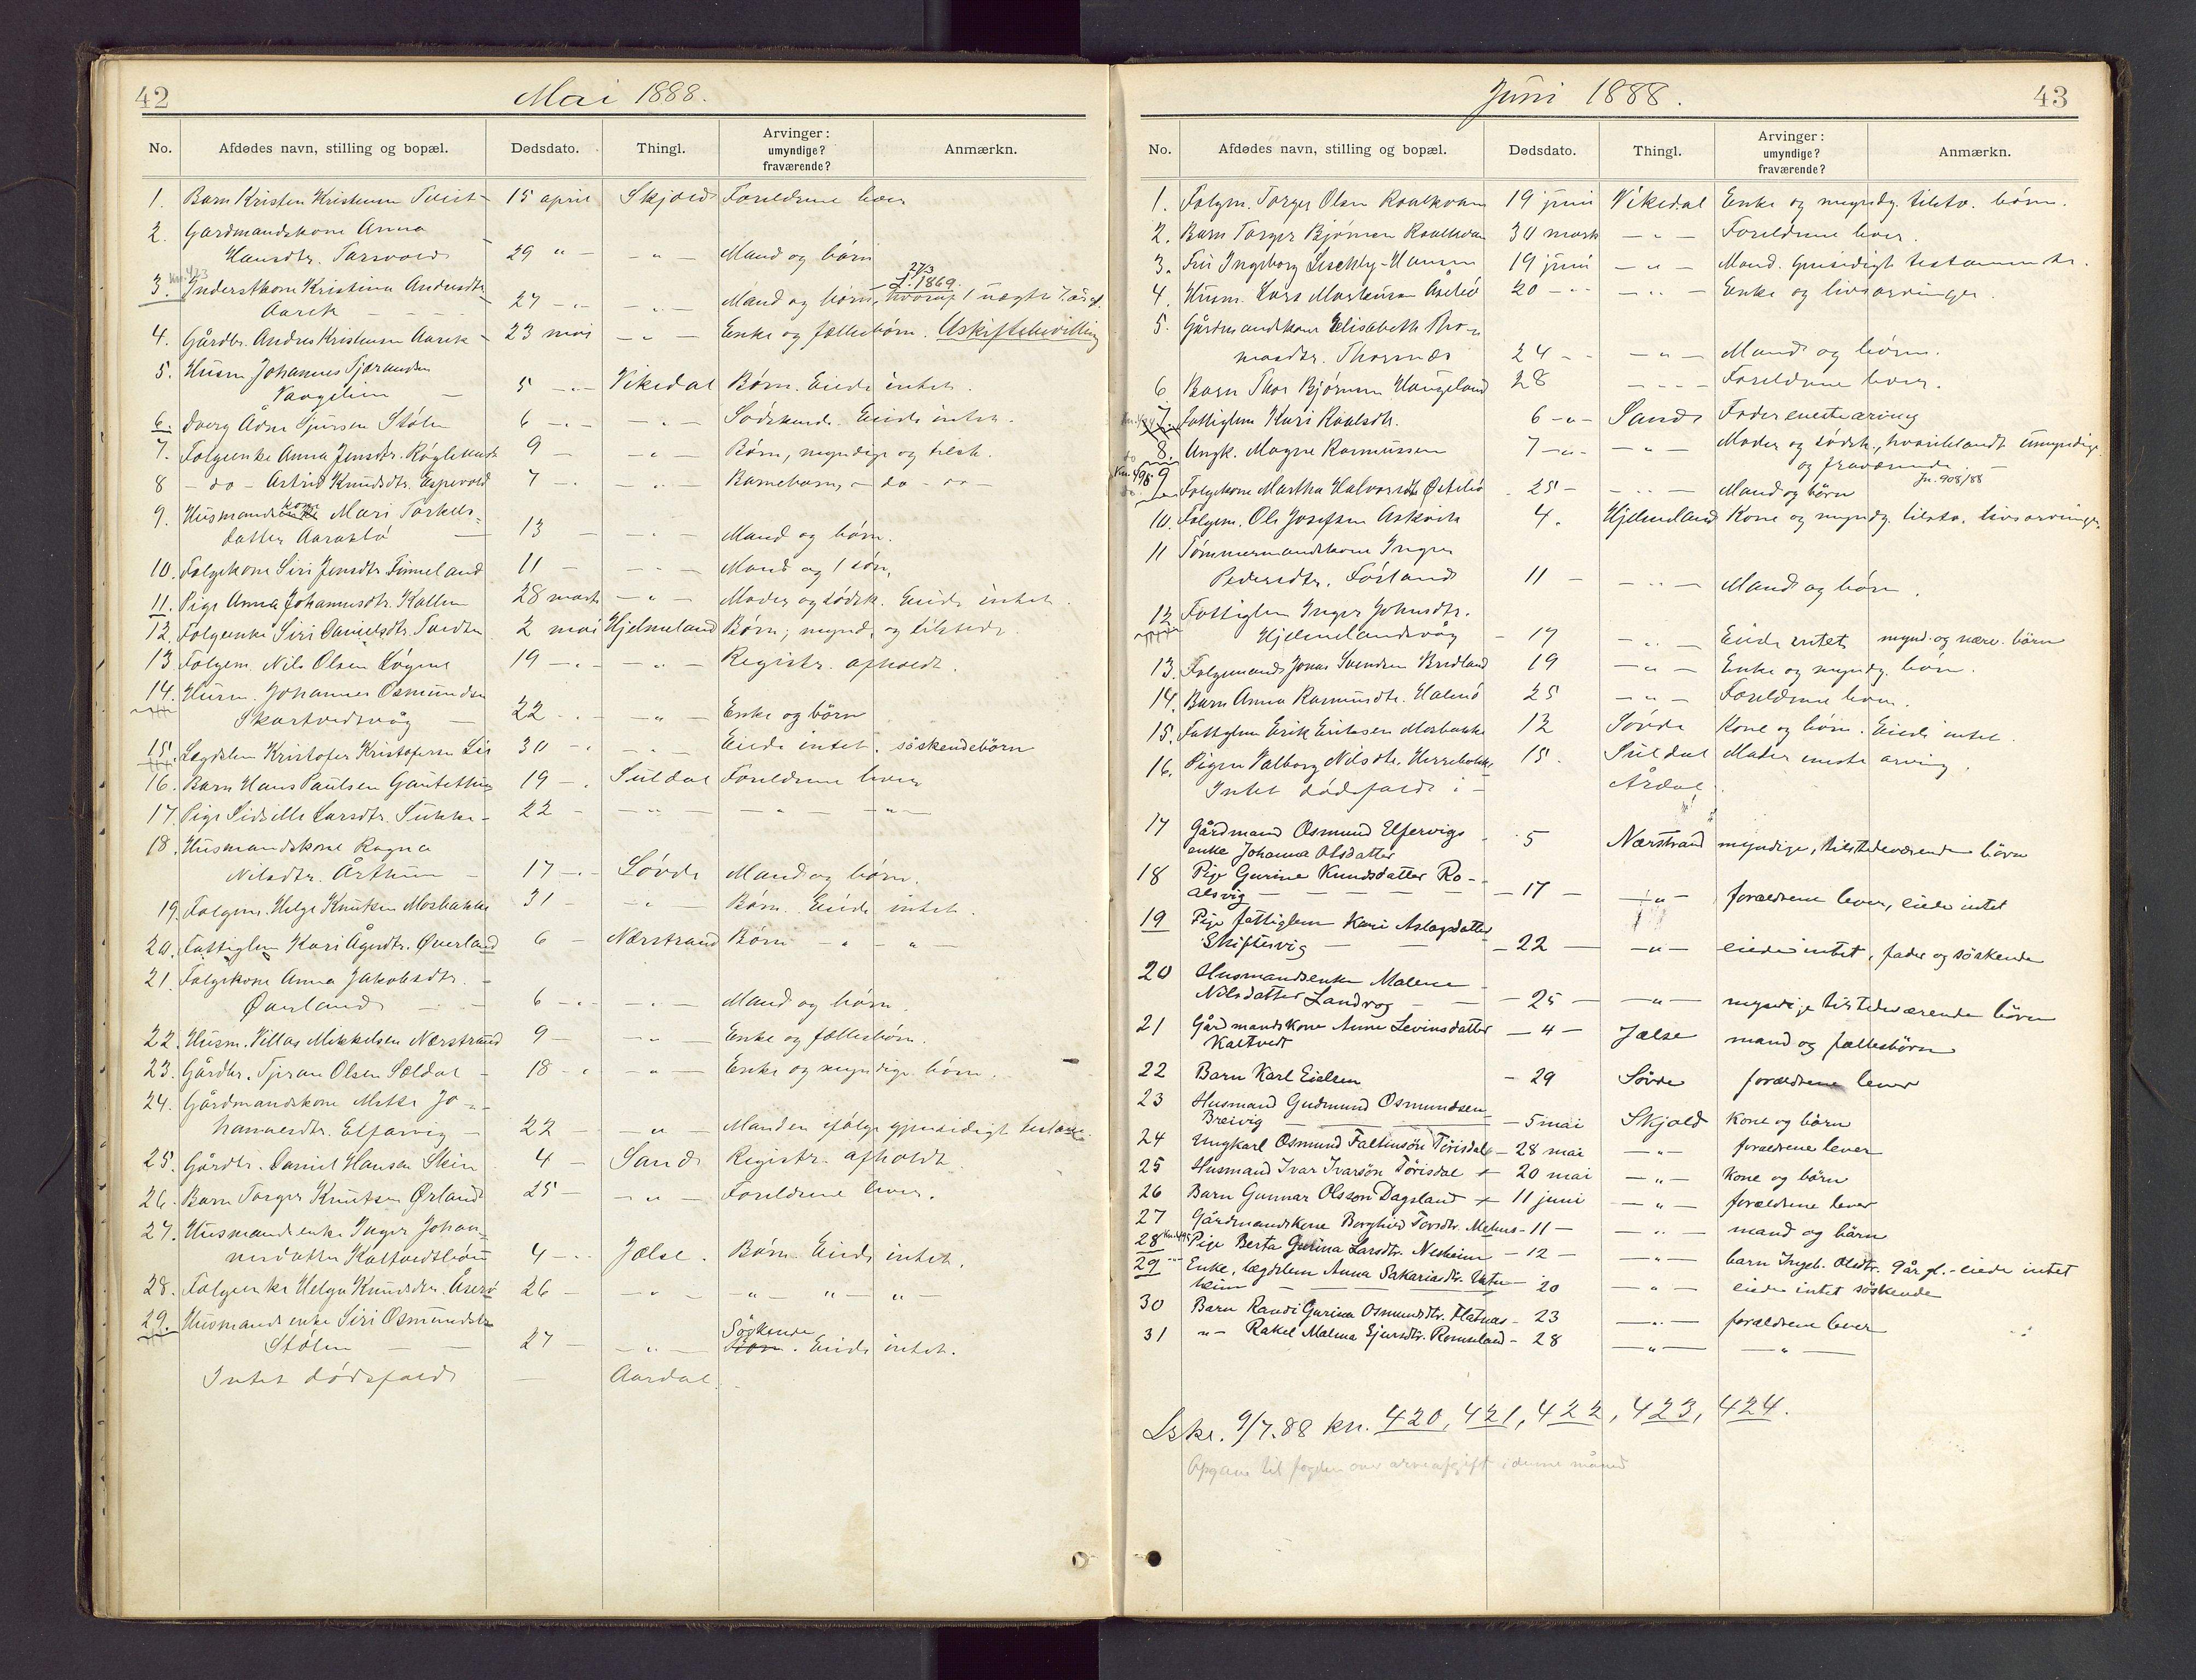 42
Mai 1888.
No. Afdødes navn, stilling og bopæl. Dødsdato. Thingl. Arvinger: umyndige? fraværende? Anmærkn.
1. Barn Kristen Kristensen Tveit - 15 april Skjold Foreldrene lever
2. Gardmandskone Anna
Hansdtr. 29 " - - " - Mand og børn
3. Inderstkone Kristina Andersdtr.
2/3
f. 1869.
Aarek - 27 - " - Mand og børn, hvoraf 1
4. Gårdbr. Andres Kristensen Aarek - 23 mai - " - Enke og fællesbørn. Uskiftebevilling
5. Husm. Johannes
5 - " - Vikedal Børn. Eiede intet.
6. Åsne Sjursen Stølen 6 - " - - " - Sødskende. Eiede intet.
7. Folgeenke Anna Jensdtr. 9 - - " - Børn, myndige og tilst.
8 - do - Astrid Knudsdtr. Espevold 7 - - " - Barnebarn, - do - do -
9. Husmandskone Mari Torkels-
datter 13 - - " - Mand og børn.
10. Folgekone Siri Jensdtr. Finneland 11 - - " - Mand og 1 søn.
11. Pige Anna Johannesdtr. Kallen 28 marts - " - Moder og sødsk. Eiede intet.
12. Folgeenke Siri Danielsdtr. 2 mai Hjelmeland Børn; mynd. og tilstede.
13 Folgem. Nils Olsen 19 - " - - " - Registr. afholdt.
14. Husm. Johannes Osmundsen
Skartvedtvåg - 22 - " - - " - Enke og børn
15. Lægdslem Kristofer Kristofersen Lie 30 - " - - " - Eiede intet. söskendebörn
16. Barn Hans Paulsen 19 - " Suldal Foreldrene lever
17. Pige Sidselle Larsdtr. 22 - - " - - " - - " -
18. Husmandskone Ragna
Nilsdtr. Årthun - 17 - " - Søvde Mand og børn.
19. Folgem. Helge Knutsen Mosbakke 31 - - " - Børn. Eiede intet.
20. Fattiglem Kari Ågesdtr. Øverland 6 - Nærstrand Børn - " - - " -
21. Folgekone Anna Jakobsdtr. -
Øverland - 6 - " - - " - Mand og børn.
22. Husm. Villas Mikkelsen Nærstrand 9 - - " - Enke og fællesbørn.
23. Gårdbr. Olsen Sældal - 18 - " - " - Enke og myndige børn.
24. Gårdmandskone Mette Jo-
hannesdtr. Elfarvig - 22 - - " - Manden ifølge gjensidigt testam.
25. Gårdbr. Daniel Hansen Skin 4 - Sand Registr. afholdt
26. Barn Torger Knutsen Ørland 25 - - " - Foreldrene lever.
27. Husmandsenke Inger Johan-
nesdatter 4 - " Jelse. Børn. Eiede intet.
28. Folgeenke Helga Knudsdtr. 26 - - " - - " - " - " -
29. Husmandsenke Siri Osmundsdtr
Söskende
Stølen - 27 - - " - Børn. Eiede intet.
Intet dødsfald - Aardal.
43
Juni 1888.
No. Afdødes navn, stilling og bopæl. Dødsdato. Thingl. Arvinger: umyndige? fraværende? Anmærkn.
1. Folgm. Torger Olsen Roalkvam 19 juni Vikedal Enke og myndg. tilstv. børn.
2. Barn Torger Bjørnsen Roalkvam 30 marts - " - Foreldrene lever.
3. Fru Ingeborg 19 juni - " - Mand. Gjensidigt testamente.
4. Husm. Lars Mortensen 20 - " - - " - Enke og livsarvinger.
5. Gårdmandskone Elisabeth Tho-
masdtr. Thornæs 24 - - - " - Mand og børn.
6. Barn Thor Bjørnsen Haugeland 28 - - - Foreldrene lever.
7. Fattiglem Kari Roalsdtr. 6 - " - Sand Fader eneste arving
8. Ungk. Magne Rasmussen 7 - " - - " - Moder og sødsk., hvoriblandt umyndige
og fraværende.
Jn. 908/88
9 Folgekone Martha Halvorsdtr. Østebø 25 - - " - Mand og børn
10. Folgem. Ole Josefsen Askvik 4. Hjelmeland Kone og myndg. tilstv. livsarvinger.
11 Tømmermandskone Inger
Pedersdtr. Førland 11 - - " - Mand og børn.
12 Fattiglem Inger Johnsdtr.
Hjelmelandsvåg - 17 - " - Eiede intet mynd. og nærv. börn
13. Folgemand Jonas Svendsen 19 - " - Enke og myndg. børn.
14. Barn Anna Rasmusdtr. Halnø 25 - " - Foreldrene lever.
15. Fattiglem Erik Eriksen Mosbakke 12 Søvde Kone og børn. Eiede intet.
16. Pigen Valborg Nilsdtr. 15. Suldal Moder eneste arving.
Intet dødsfald i - Årdal
17 Gårdmand Osmund Elfervigs
enke Johanna Olsdatter - 5 Nærstrand myndige, tilstedeværende börn
18 Pige Gurine Knudsdatter Ro-
alsvig - - 17 - - " - forældrene lever, eiede intet
19 Pige fattiglem Kari Aslagsdatter
Skiftesvig - 22 - - " - eiede intet, fader og söskende
20 Husmandsenke Malene
Nilsdatter Landvog - 25 - - " - myndige tilstedeværende börn
21 Gårdmandskone Anne Levinsdatter - 4 - Jælse mand og fællesbörn
Kaltvedt
22 Barn Karl Eielsen - 29 Søvde forældrene lever
23 Husmand Gudmund Osmundsen
Breivig - 5 mai Skjold kone og börn
24 Ungkarl Osmund Faltinsön Törisdal - 28 mai - " - forældrene lever
25 Husmand Ivar Ivarsön Törisdal - 20 mai - " - kone og börn
26 Barn Gunnar Olsson Dagsland - 11 juni - " - forældrene lever
27 Gårdmandskone Borghild Torsdtr. Mehus - 11 - - " - mand og börn
28 Pige Berta Gurina Larsdtr. Nesheim - 12 - - " - barn Ingeb. Olsdtr. 9 år gl. - eiede intet
29 Enke, lægdslem Anna Sakariasdtr. Vats-
heim - 20 - " - eiede intet söskende
30 Barn Randi Gurina Osmundsdtr. Flatnæs - 23 - " - forældrene lever
31 " - Rakel Malena Sjursdtr. Romsland - 28 - " - - " -
Lskr. 9/7.88 kn. 420, 421, 422, 423, 424.
Opgave til fogden over arveafgift i denne måned